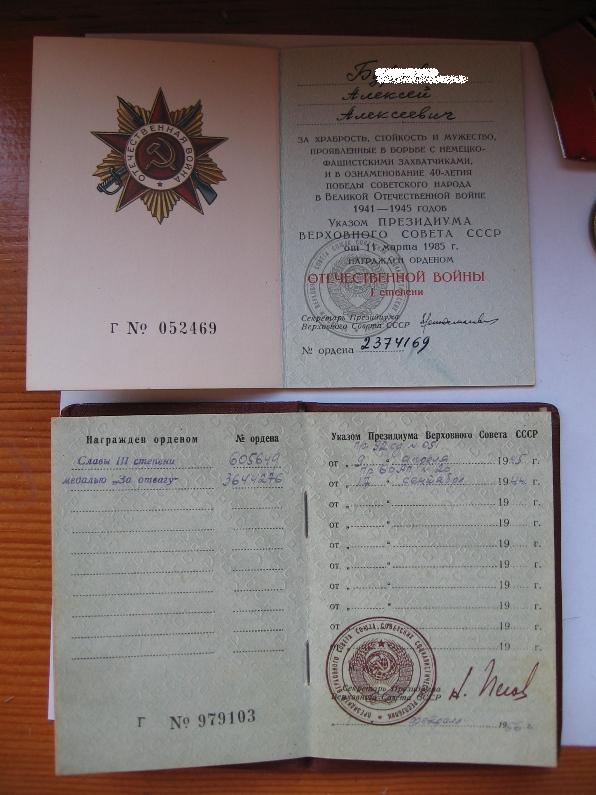 ОТЕЧЕСТВЕННАЯ ВОЙНА
Г № 052469
Алексей
Алексеевич
ЗА ХРАБРОСТЬ, СТОЙКОСТЬ И МУЖЕСТВО,
ПРОЯВЛЕННЫЕ В БОРЬБЕ С НЕМЕЦКО-
ФАШИСТСКИМИ ЗАХВАТЧИКАМИ,
И В ОЗНАМЕНОВАНИЕ 40-ЛЕТИЯ
ПОБЕДЫ СОВЕТСКОГО НАРОДА
В ВЕЛИКОЙ ОТЕЧЕСТВЕННОЙ ВОЙНЕ
1941—1945 ГОДОВ
УКАЗОМ ПРЕЗИДИУМА
ВЕРХОВНОГО СОВЕТА СССР
от 11 марта 1985 г.
НАГРАЖДЕН ОРДЕНОМ
ОТЕЧЕСТВЕННОЙ ВОЙНЫ
I степени
Секретарь Президиума
Верховного Совета СССР
№ ордена 2374169
Награжден орденом № ордена
Славы III степени 605649
медалью „За отвагу“ 3644276
Г № 979103
Указом Президиума Верховного Совета СССР
от „ 9 “ апреля 1945 г.
от „ 17 “ сентября 1944 г.
от „ “ 19 г.
от „ “ 19 г.
от „ “ 19 г.
от „ “ 19 г.
от „ “ 19 г.
от „ “ 19 г.
от „ “ 19 г.
Секретарь Президиума
Верховного Совета СССР
февраля 1966 г.